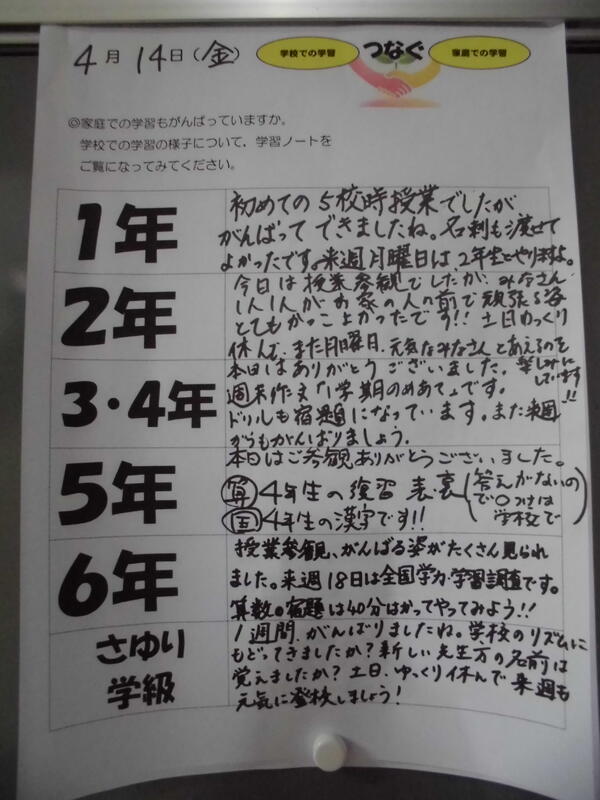 4月14日(金)
学校での学習 つなぐ 家庭での学習
◎家庭での学習もがんばっていますか。
学校での学習の様子について、学習ノートを
ご覧になってみてください。
1年
初めての5校時授業でしたが
がんばってできましたね。名刺も渡せて
よかったです。来週月曜日は、2年生とやりますよ。
2年
今日は授業参観でしたが、みなさん
1人1人がお家の人の前で頑張る姿
とてもかっこよかったです!! 土日ゆっくり
休んで、また月曜日、元気なみなさんとあえるのを
楽しみに
しています!!
3・4年
本日はありがとうございました。
週末作文「1学期のめあて」です。
ドリルも宿題になっています。また来週
からもがんばりましょう。
5年
本日はご参観ありがとうございました。
算 4年生の復習 表・裏(答えがないの
で○つけは
学校で)
国 4年生の漢字です!!
6年
授業参観、がんばる姿がたくさん見られ
ました。来週18日は全国学力・学習調査です。
算数の宿題は40分はかってやってみよう!!
さゆり
学級
1週間、がんばりましたね。学校のリズムに
もどってきましたか?新しい先生方の名前は
覚えましたか?土日、ゆっくり休んで来週も
元気に登校しましょう!